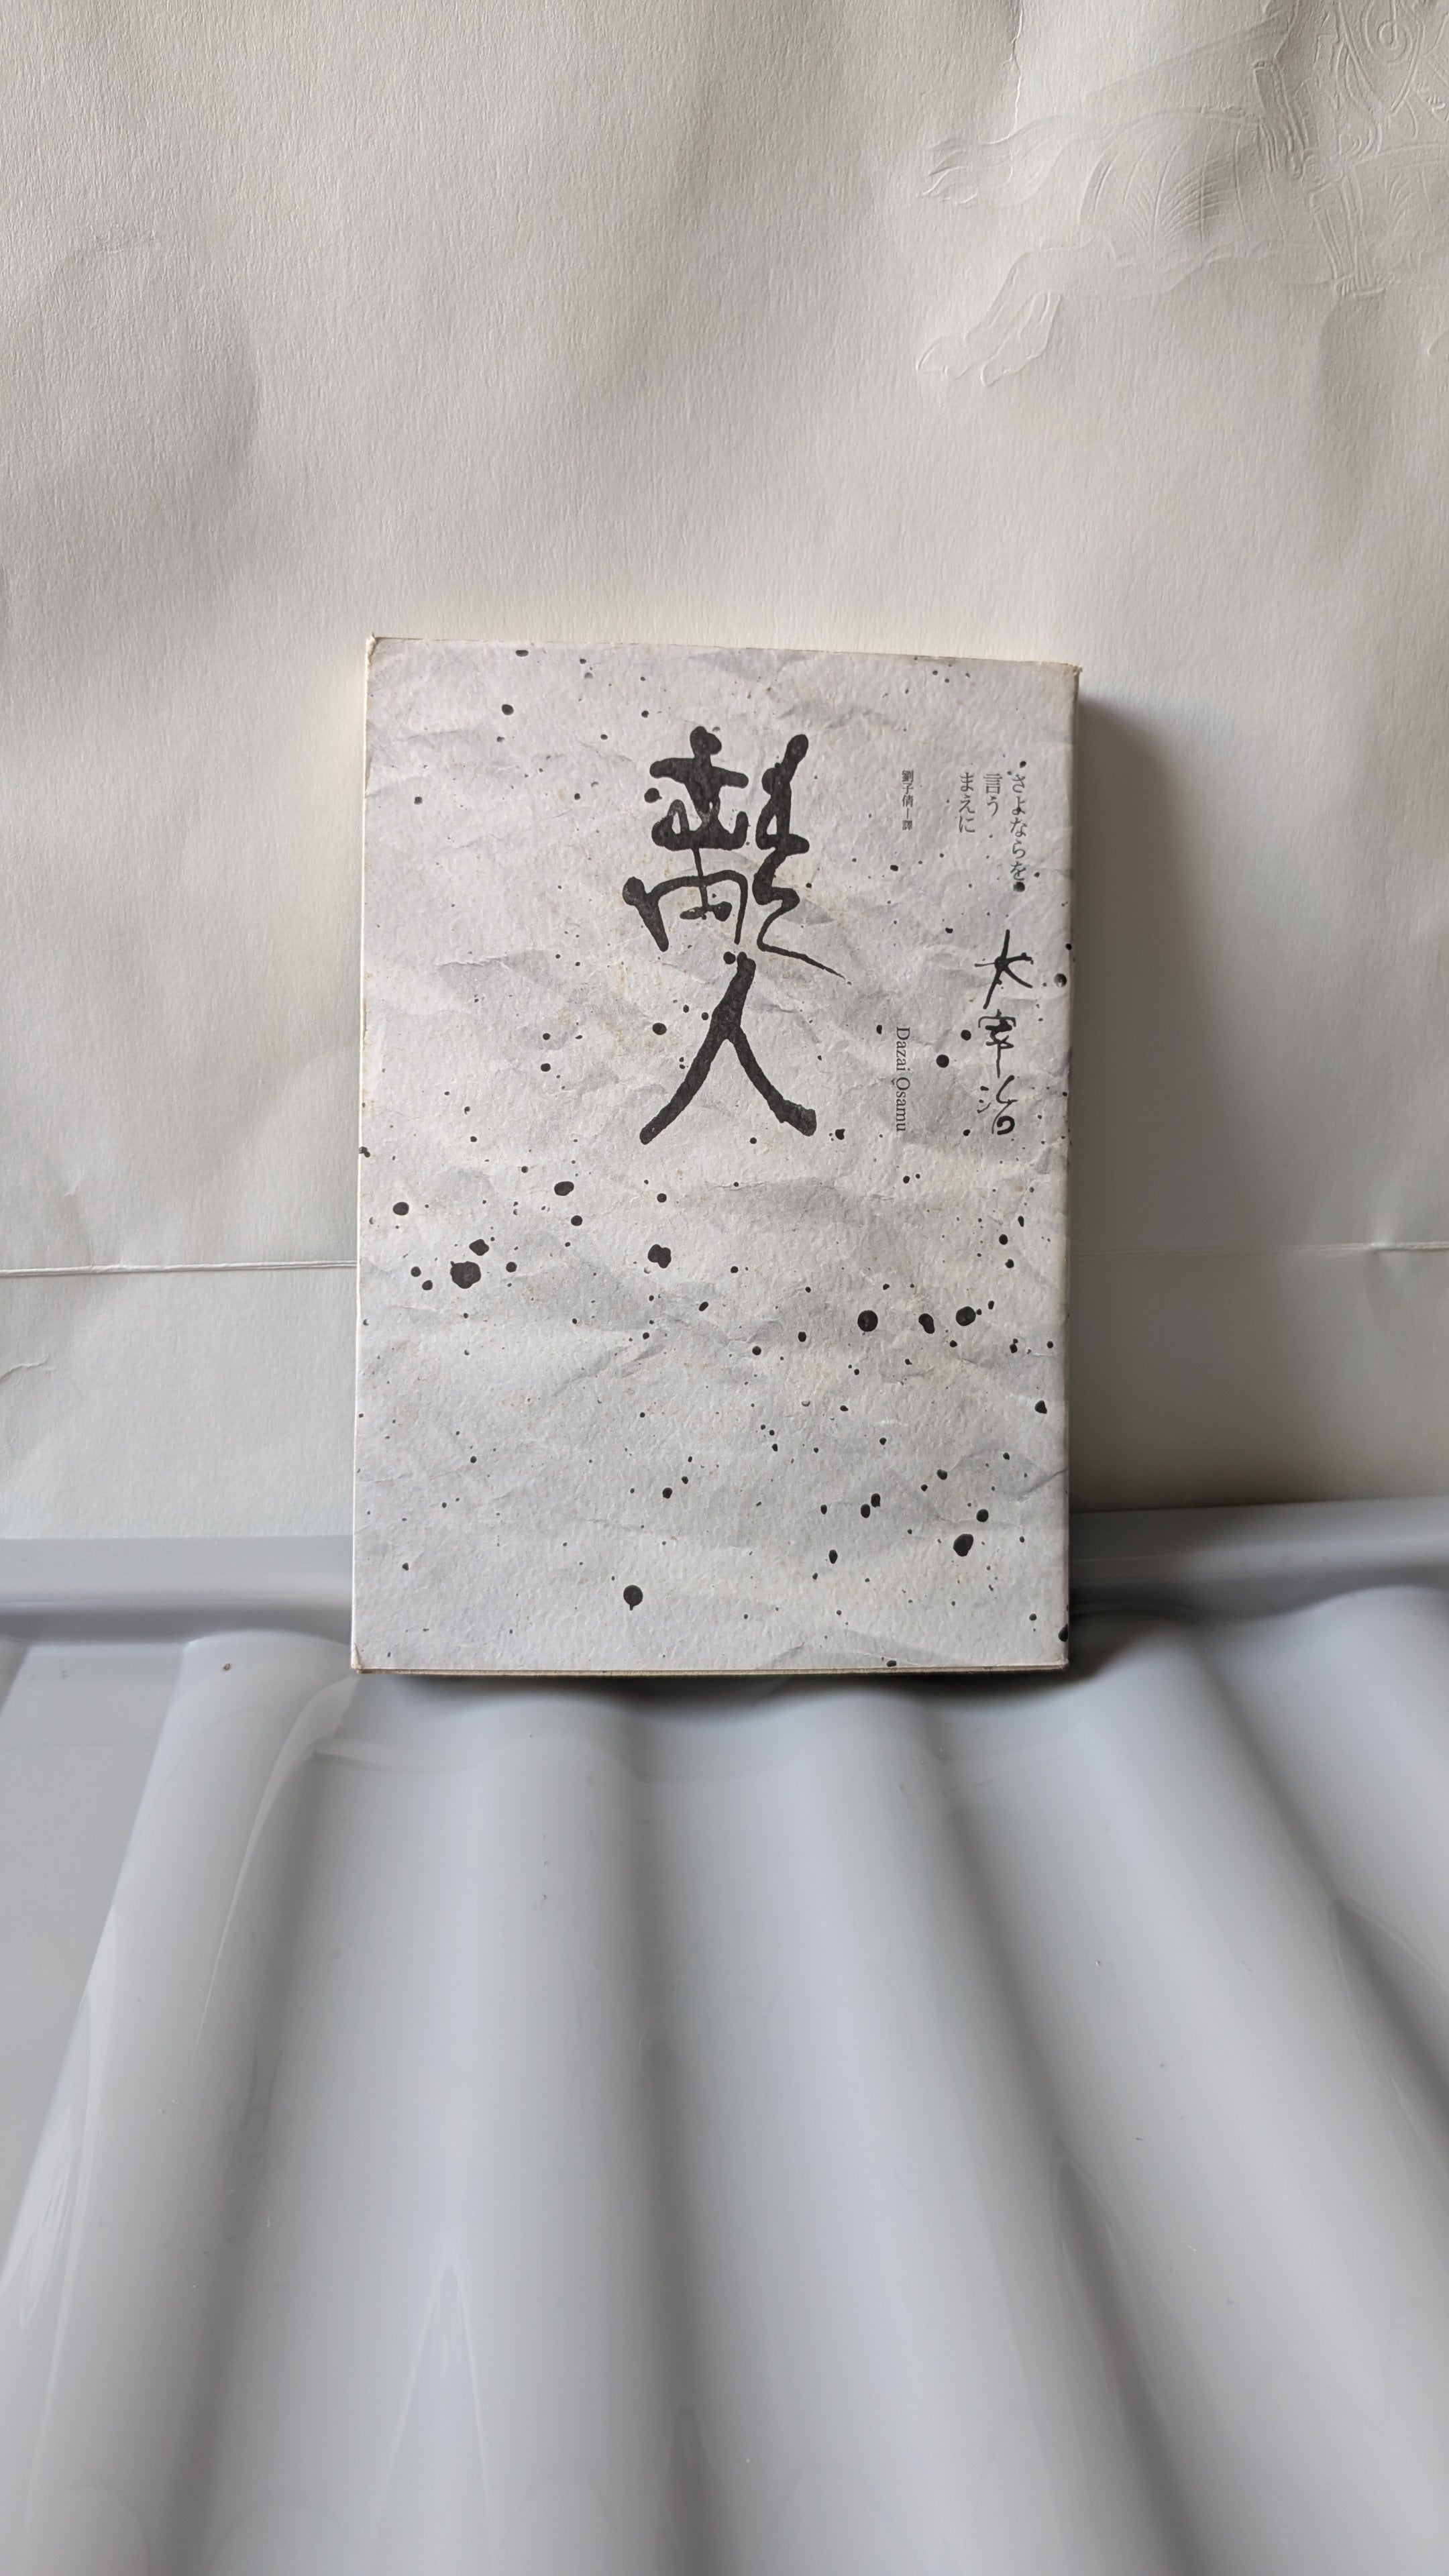 さよならを
言う
まえに
太宰治
劉子倩—譯
Dazai Osamu
離人